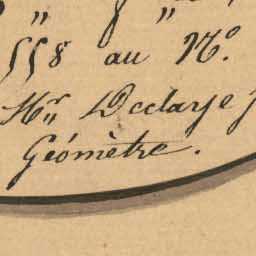 „ „
558 au N.º
Mr. Declarje
Géomètre.